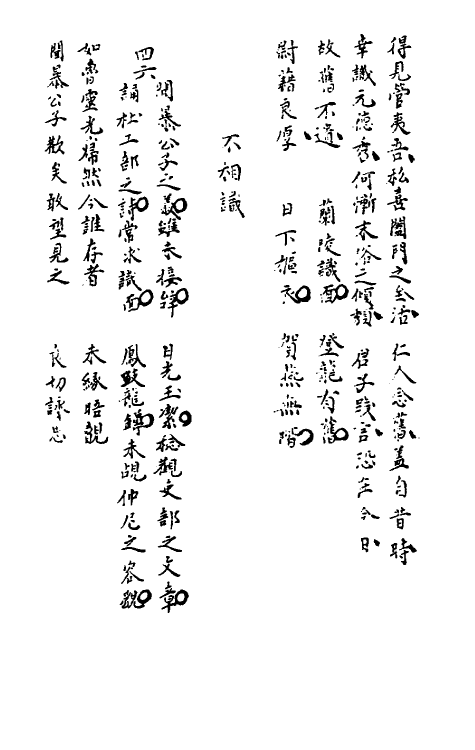 得見管夷吾私喜闔門之全活 仁人念舊蓋自昔時
幸識元德秀何慚末俗之傾頹 君子踐言恐在今日
故舊不遺 蘭陵識面 登龍有舊
尉藉良厚 日下摳衣 賀燕無階
不相識
四六
聞暴公子之義雖未接辭 日光玉潔稔觀吏部之文章
誦杜工部之詩常求識面 鳳跂龍蹲未覘仲尼之容貌
如魯靈光巋然今誰存者 未緣晤覿
聞暴公子散矣敢望見之 良切詠思